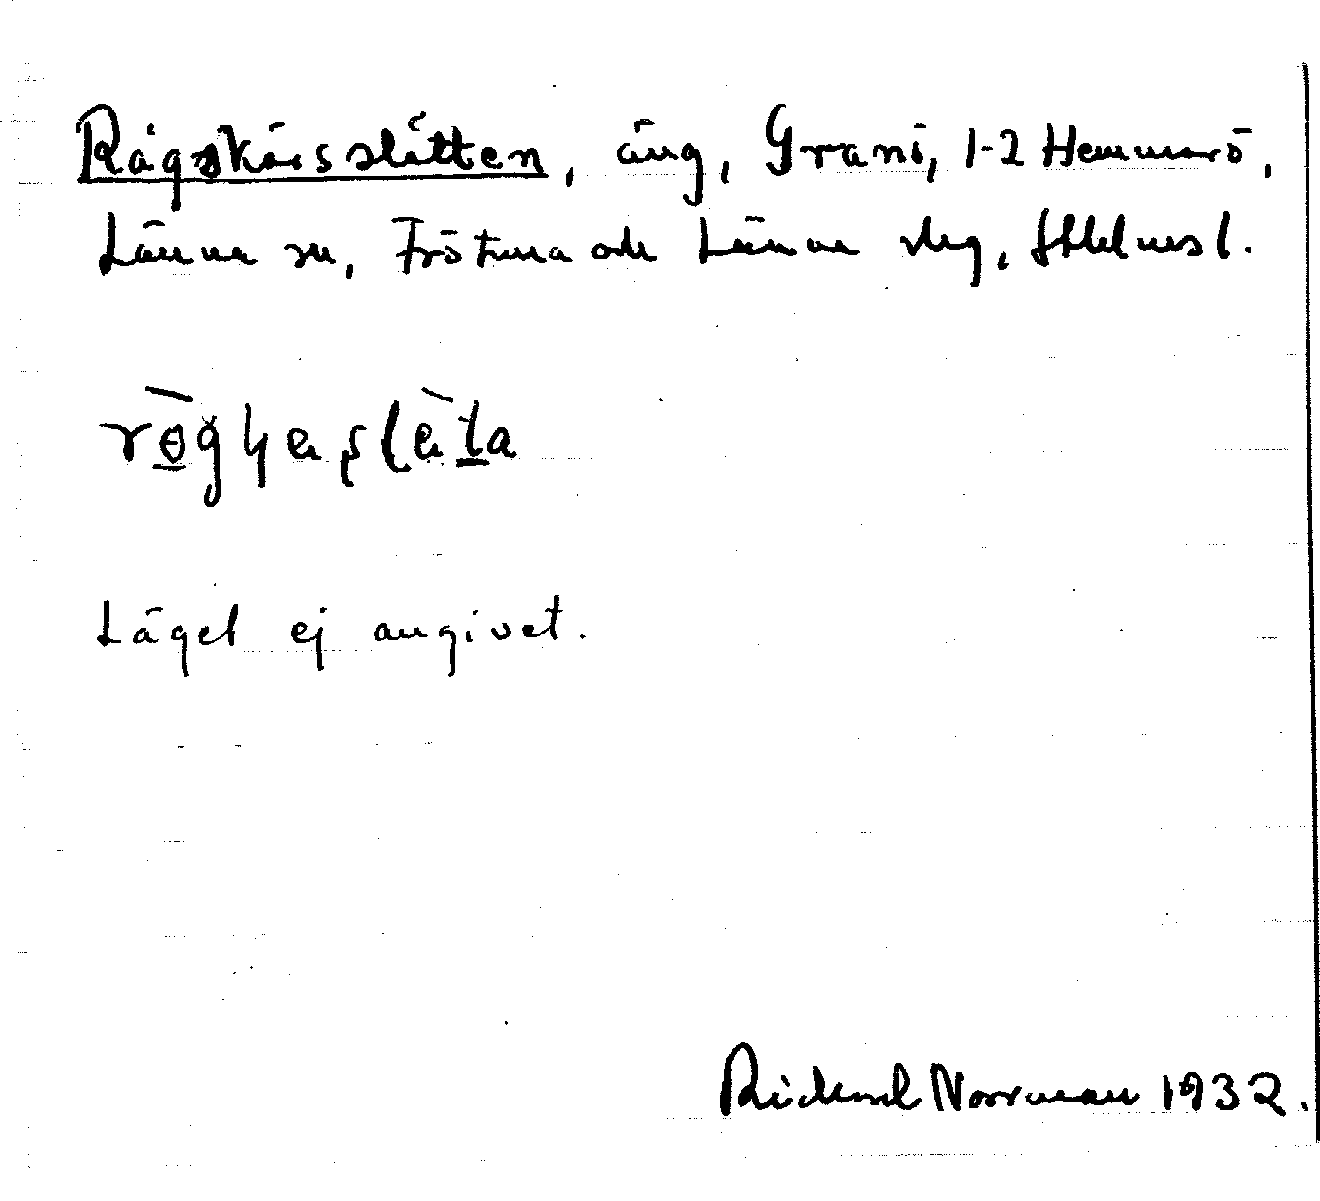 Rågskärsslätten, äng, Granö, 1-2 Hemmarö,
Länna sn, Frötuna och Länna skg, Sthlms l.
Läget ej angivet.
Rickard Norrman 1932.